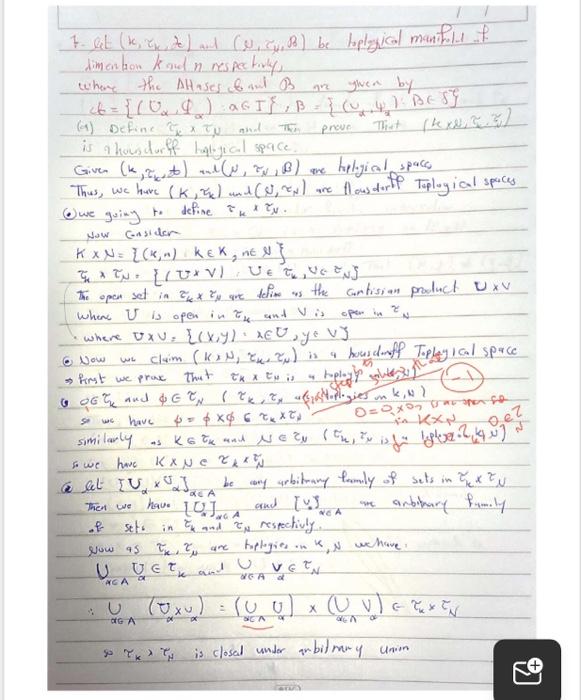 7. let (K, τ_K, A) and (N, τ_N, B) be toplogical manifold of
dimention K and n respectively,
where the Atlases A and B are given by
A = {(U_α, φ_α) : α ∈ I}, B = {(V_α, ψ_α) : β ∈ J}
(a) Define τ_K × τ_N and then prove That (K×N, τ_K, τ_N)
is a housdorff toplogical space.
Given (K, τ_K, A) and (N, τ_N, B) are toplogical spaces
Thus, we have (K, τ_K) and (N, τ_N) are Housdorff Toplogical spaces
we going to define τ_K × τ_N.
Now Consider
K × N = {(k, n) : k ∈ K, n ∈ N}
τ_K × τ_N = {(U × V) : U ∈ τ_K, V ∈ τ_N}
The open set in τ_K × τ_N are define as the Cartisian product U×V
where U is open in τ_K and V is open in τ_N
where U×V = {(x, y) : x ∈ U, y ∈ V}
Now we claim (K×N, τ_K, τ_N) is a housdorff Toplogical space
⇒ first we prove That τ_K × τ_N is a toplogy
-1
φ ∈ τ_K and φ ∈ τ_N (τ_K, τ_N toplogies on K, N)
so we have φ = φ × φ ∈ τ_K × τ_N
in K×N
similarly as K ∈ τ_K and N ∈ τ_N (τ_K, τ_N is
so we have K × N ∈ τ_K × τ_N
let {U_α × V_α}_{α∈A} be any arbitrary family of sets in τ_K × τ_N
Then we have {U_α}_{α∈A} and {V_α}_{α∈A} are arbitrary family
of sets in τ_K and τ_N respectivly.
Now as τ_K, τ_N are toplogies on K, N we have:
∪_{α∈A} U_α ∈ τ_K and ∪_{α∈A} V_α ∈ τ_N
∴ ∪_{α∈A} (U_α × V_α) = (∪_{α∈A} U_α) × (∪_{α∈A} V_α) ∈ τ_K × τ_N
so τ_K × τ_N is closed under arbitrary union